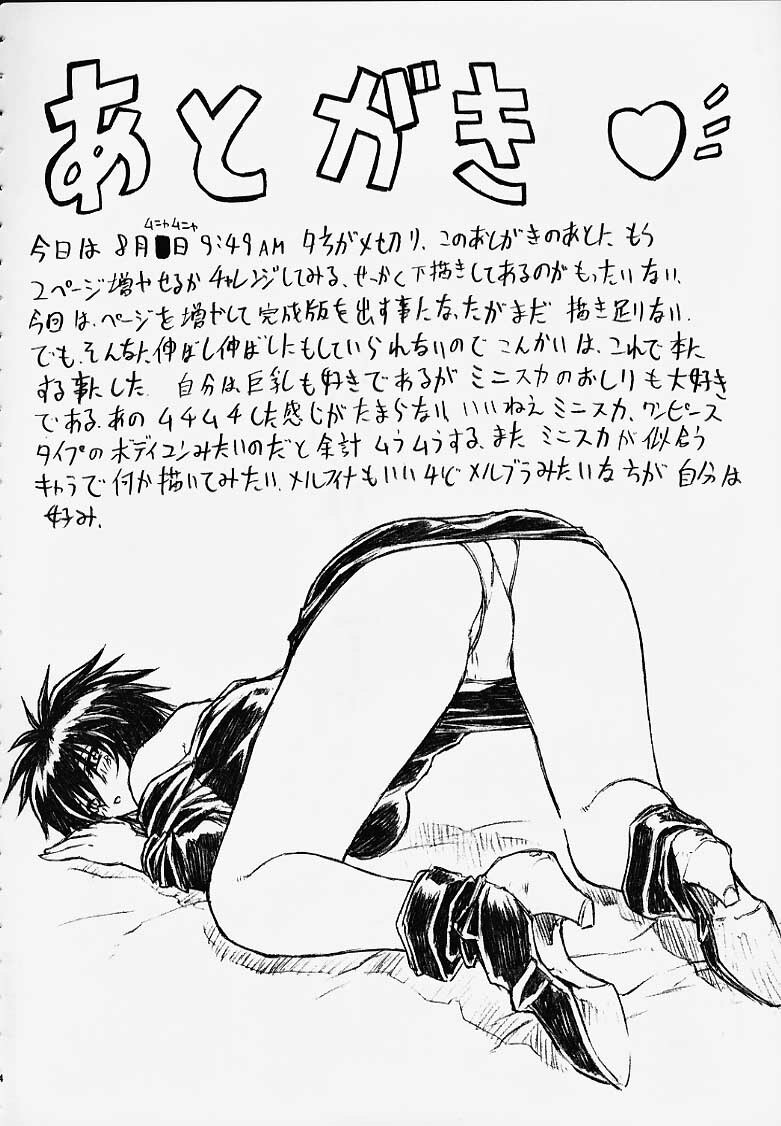 あとがき
ムニャムニャ
今日は 8月 日 9:49AM 夕方がメ切り、このあとがきのあとに もう
2ページ増やせるか チャレンジしてみる、せっかく下描きしてあるのがもったいない、
今回は、ページを増やして完成版を出す事になったがまだ 描き足りない、
でも、そんなに伸ばし伸ばしにもしていられないので こんかいは、これで本に
する事にした 自分は巨乳も好きであるが ミニスカのおしりも大好き
である、あの ムチムチした感じがたまらない、いいねえ ミニスカ、ワンピース
タイプの ボディコンみたいのだと 余計 ムラムラする、また ミニスカが似合う
キャラで何か描いてみたい、メルフィナもいいけど メルブラみたいな方が 自分は
好み、